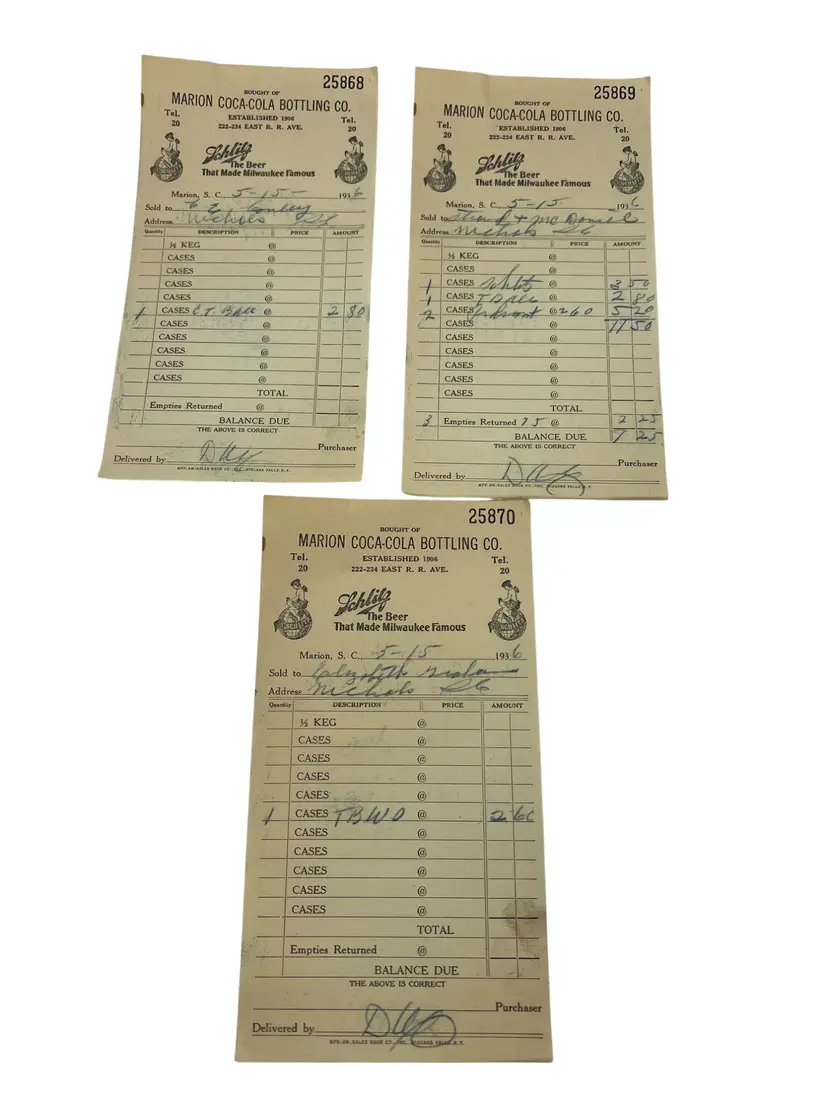 25868
BOUGHT OF
MARION COCA-COLA BOTTLING CO.
Tel. 20 ESTABLISHED 1906 Tel. 20
222-224 EAST R. R. AVE.
Schlitz
The Beer
That Made Milwaukee Famous
Marion, S. C., 5-15- 1936
Sold to
Address Nichols SC
Quantity DESCRIPTION PRICE AMOUNT
½ KEG @
CASES @
CASES @
CASES @
CASES @
1 CASES @ 2 80
CASES @
CASES @
CASES @
CASES @
CASES @
TOTAL
Empties Returned @
BALANCE DUE
THE ABOVE IS CORRECT
Purchaser
Delivered by
MFD-AM-SALES BOOK CO., INC. NIAGARA FALLS, N.Y.
25869
BOUGHT OF
MARION COCA-COLA BOTTLING CO.
Tel. 20 ESTABLISHED 1906 Tel. 20
222-224 EAST R. R. AVE.
Schlitz
The Beer
That Made Milwaukee Famous
Marion, S. C., 5-15 1936
Sold to + McDaniel
Address Nichols SC
Quantity DESCRIPTION PRICE AMOUNT
½ KEG @
CASES @
1 CASES Schlitz @ 3 50
1 CASES @ 2 80
2 CASES @ 260 5 20
CASES @ 11 50
CASES @
CASES @
CASES @
CASES @
CASES @
TOTAL
3 Empties Returned 75 @ 2 25
BALANCE DUE 7 25
THE ABOVE IS CORRECT
Purchaser
Delivered by
MFD-AM-SALES BOOK CO., INC. NIAGARA FALLS, N.Y.
25870
BOUGHT OF
MARION COCA-COLA BOTTLING CO.
Tel. 20 ESTABLISHED 1906 Tel. 20
222-224 EAST R. R. AVE.
Schlitz
The Beer
That Made Milwaukee Famous
Marion, S. C., 5-15 1936
Sold to Elizabeth
Address Nichols SC
Quantity DESCRIPTION PRICE AMOUNT
½ KEG @
CASES @
CASES @
CASES @
CASES @
1 CASES TBWO @ 2 60
CASES @
CASES @
CASES @
CASES @
CASES @
TOTAL
Empties Returned @
BALANCE DUE
THE ABOVE IS CORRECT
Purchaser
Delivered by
MFD-AM-SALES BOOK CO., INC. NIAGARA FALLS, N.Y.